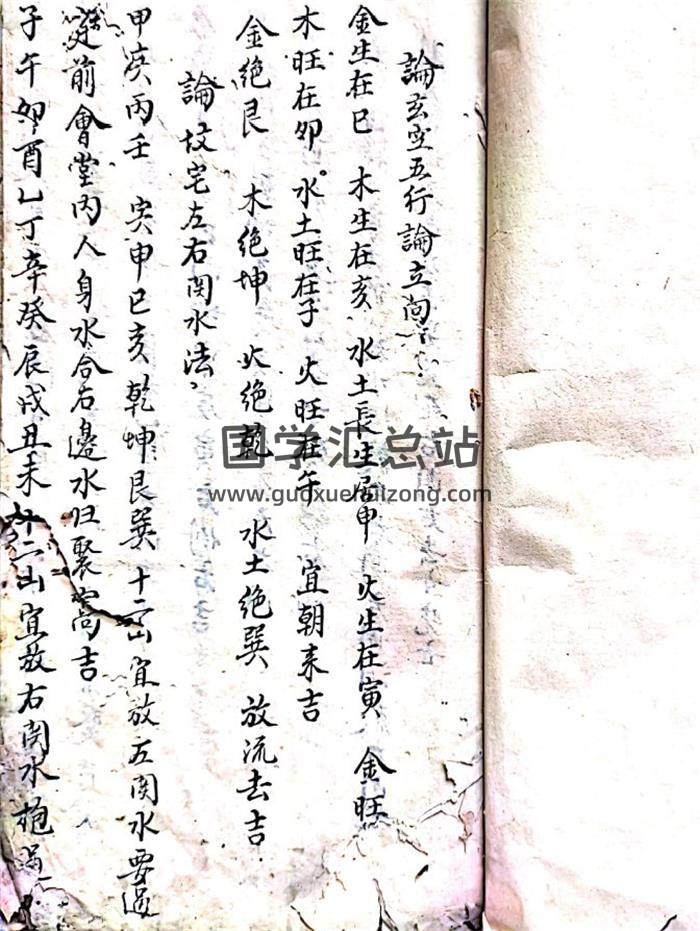 論玄空五行論立向
金生在巳 木生在亥 水土長生居申 火生在寅 金旺
木旺在卯 水土旺在子 火旺在午 宜朝来吉
金绝艮 木绝坤 火绝乾 水土绝巽 放流去吉
論坟宅左右関水法
甲庚丙壬 寅申巳亥 乾坤艮巽 十二山宜放左関水要過
堂前會堂内人身水合右邊水归聚
吉
子午卯酉乙丁辛癸辰戌丑未十二山宜放右関水抱過
国学汇总站
www.guoxuehuizong.com